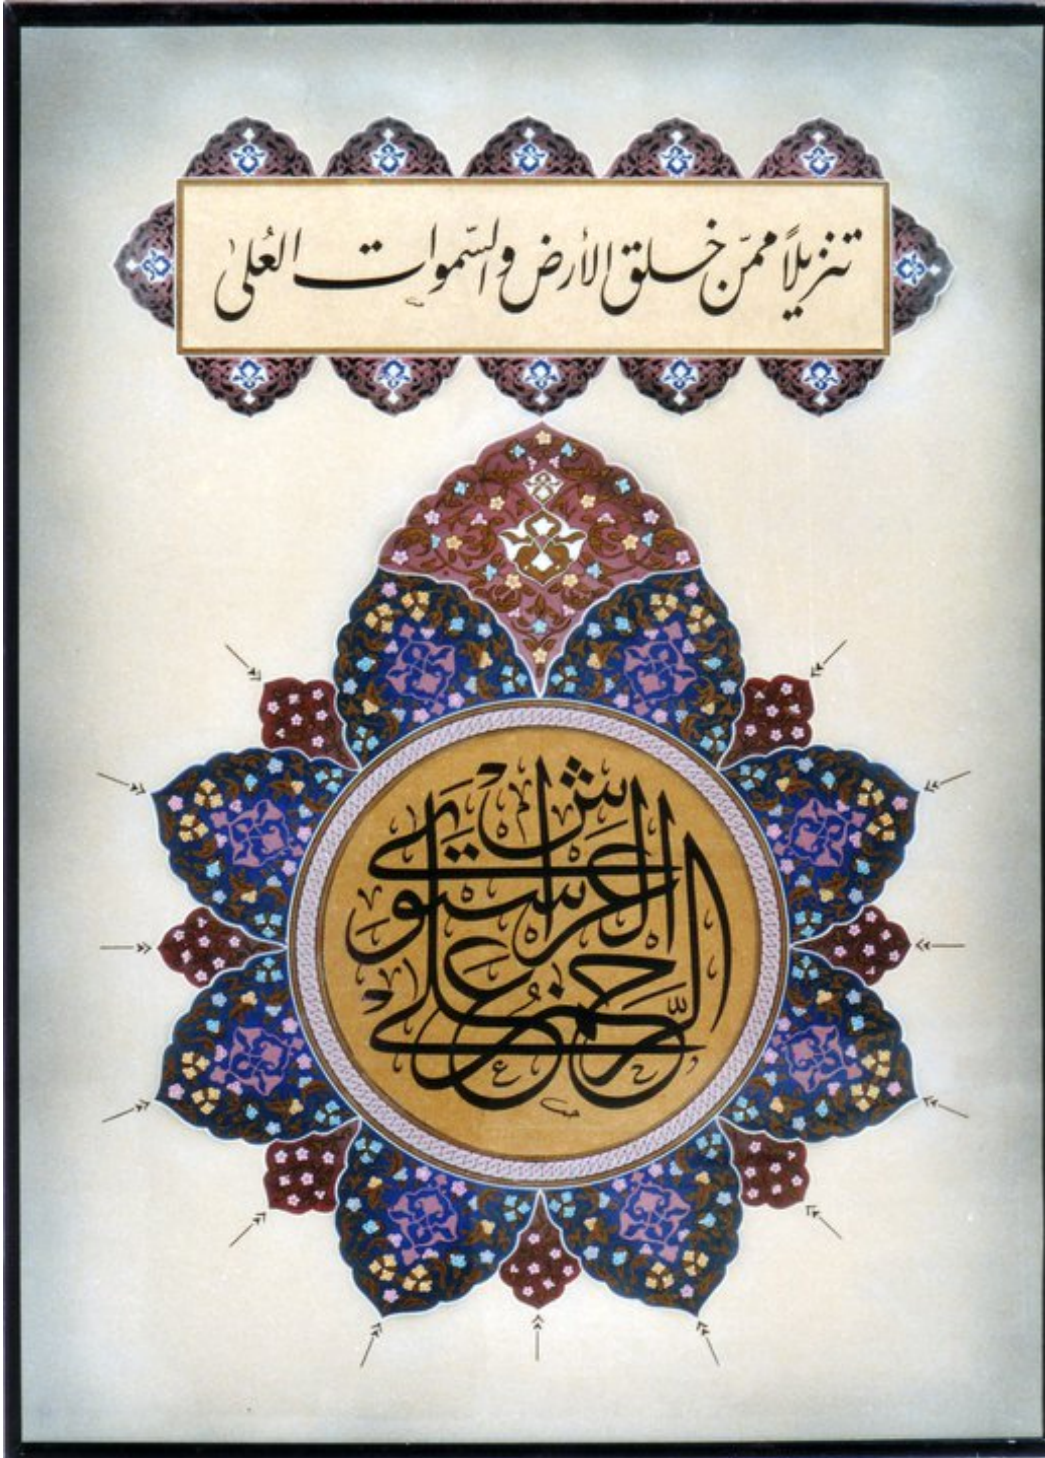 تنزيلاً ممّن خلق الأرض والسّموات العُلىٰ
الرَّحمنُ على العرش استوى